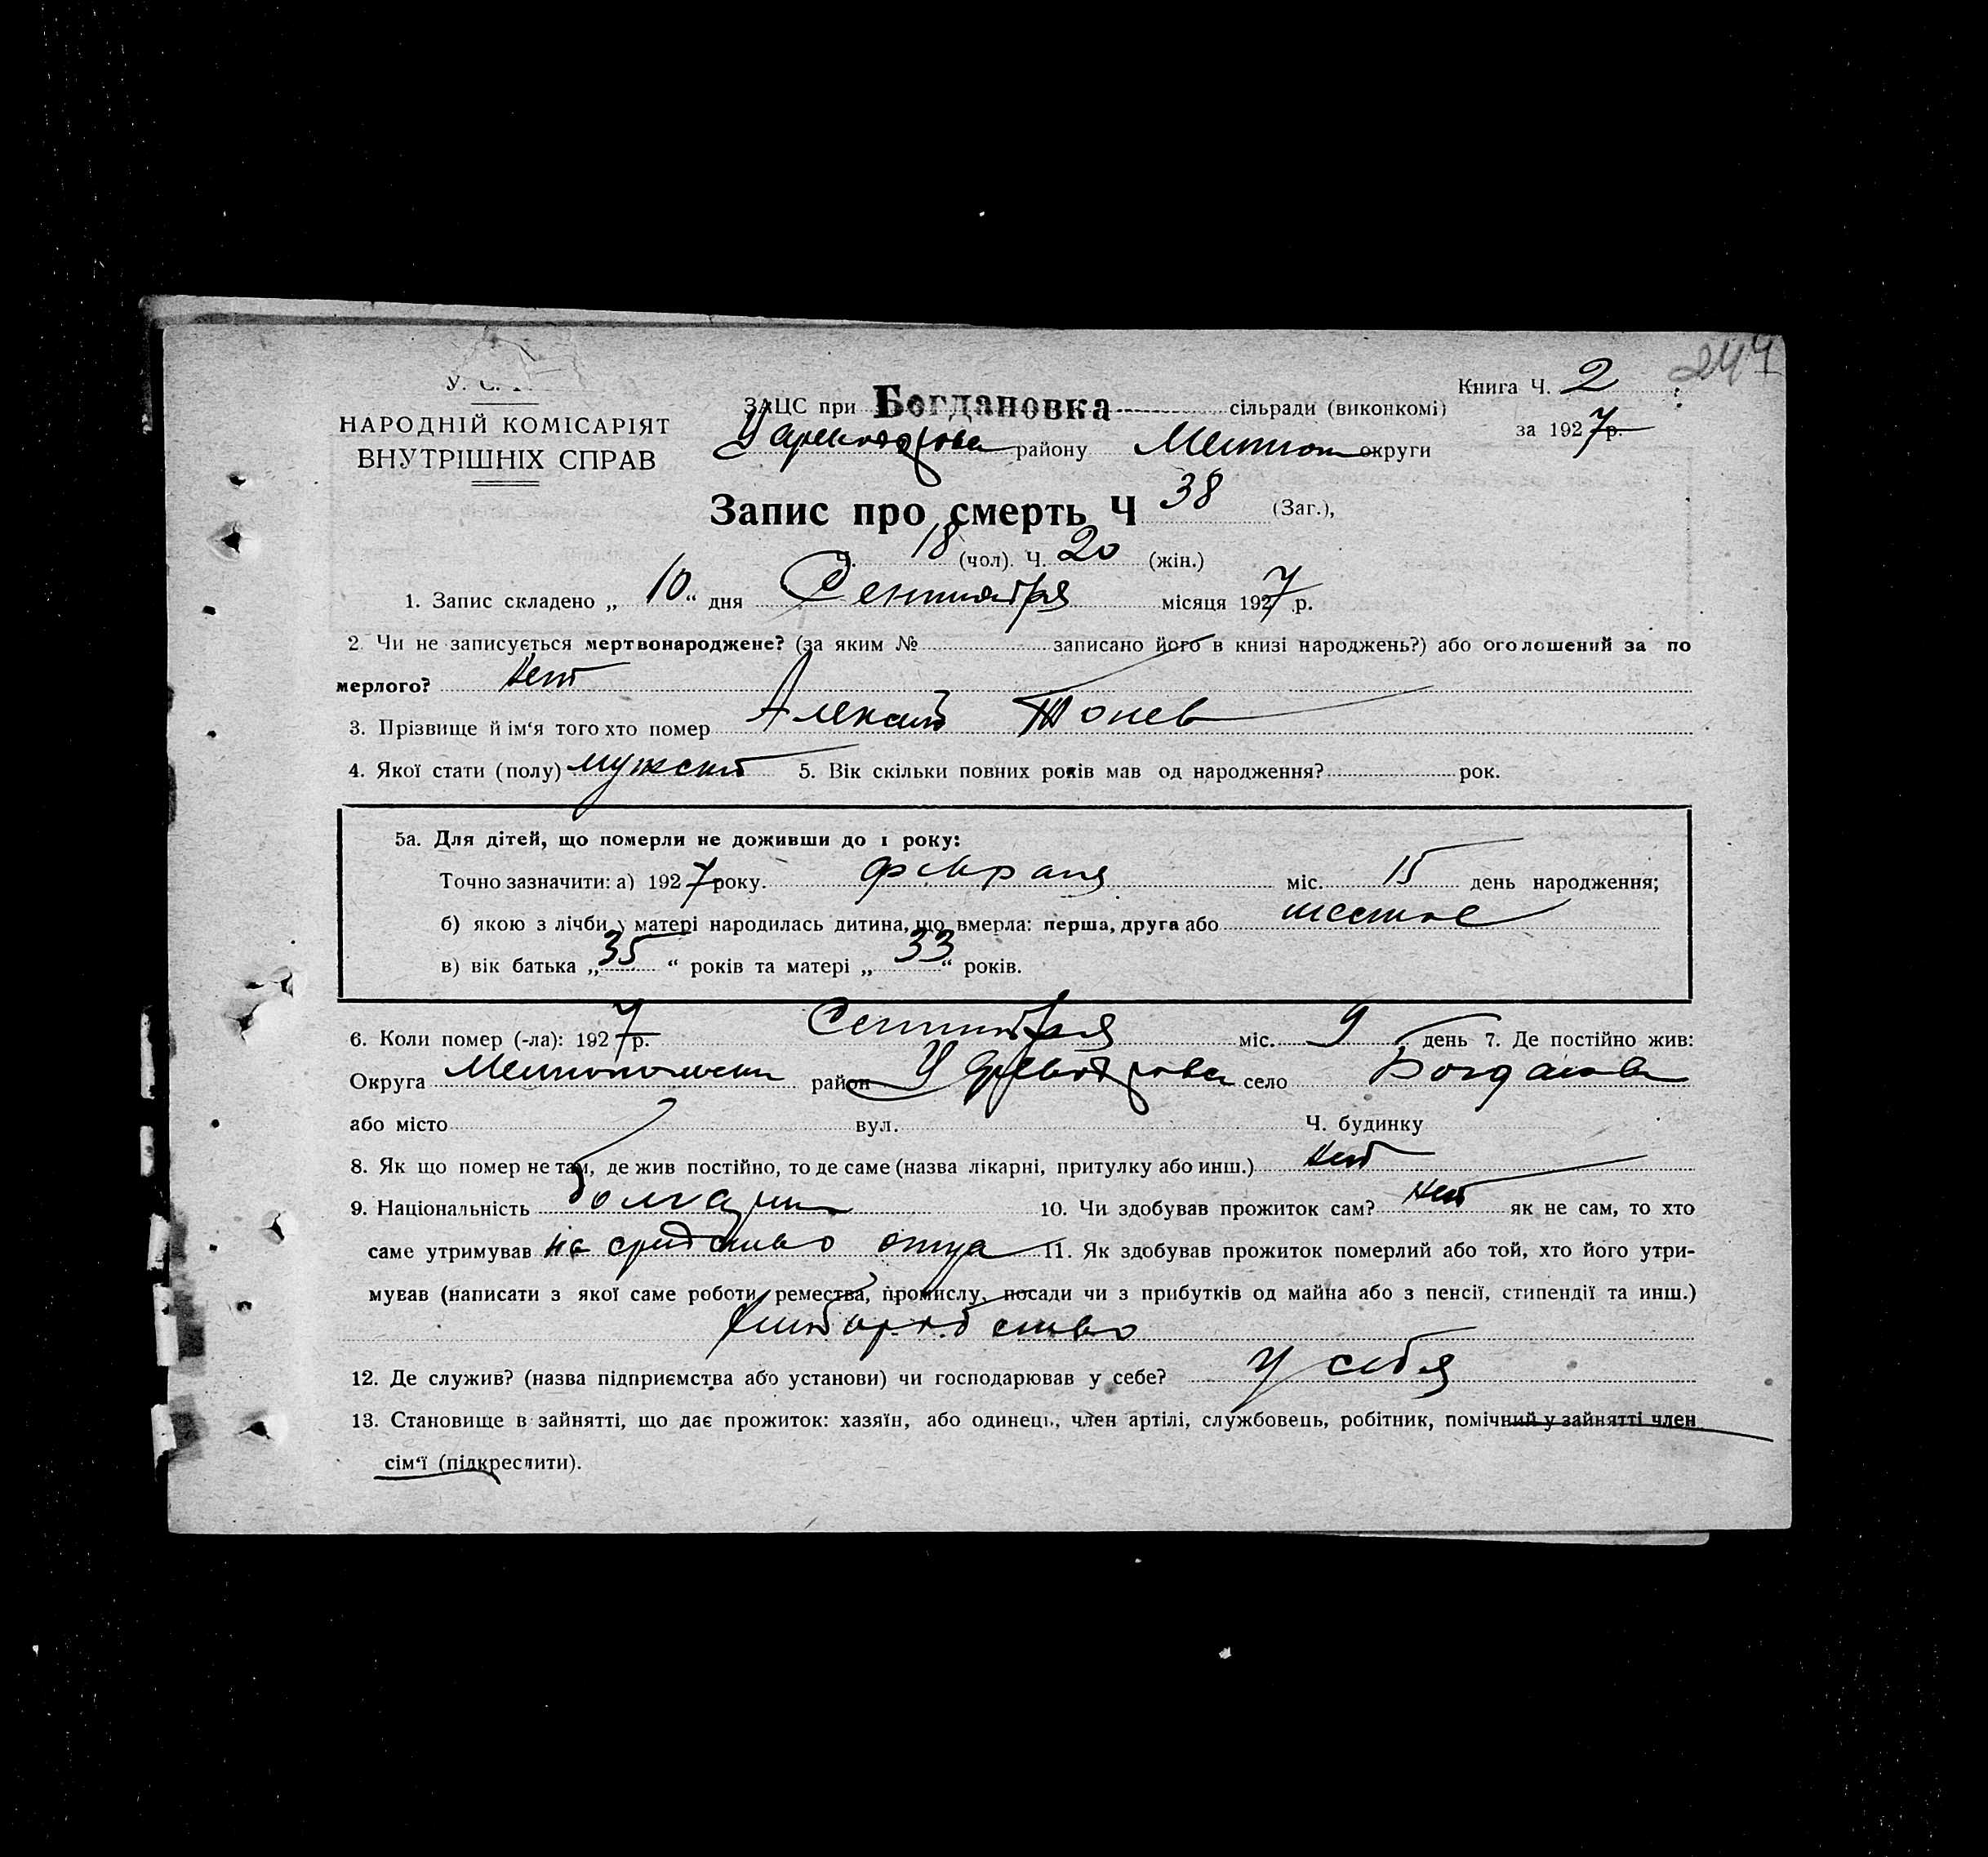 244
У. С.
Книга Ч. 2
НАРОДНІЙ КОМІСАРІЯТ
ЗАЦС при Богдановка сільради (виконкомі)
за 1927 р.
ВНУТРІШНІХ СПРАВ
району Мелитоп округи
Запис про смерть Ч 38 (Заг.),
Ч. 18 (чол). Ч. 20 (жін.)
1. Запис складено „ 10 “ дня Сентября місяця 1927 р.
2. Чи не записується мертвонароджене? (за яким № записано його в книзі народжень?) або оголошений за по
мерлого? нет
3. Прізвище й ім'я того хто помер Алексей Тонев
4. Якої стати (полу) мужской 5. Вік скільки повних років мав од народження? рок.
5а. Для дітей, що померли не доживши до 1 року:
Точно зазначити: а) 1927 року. февраля міс. 15 день народження;
б) якою з лічби у матері народилась дитина, що вмерла: перша, друга або шестое
в) вік батька „ 35 “ років та матері „ 33 “ років.
6. Коли помер (-ла): 1927 р. Сентября міс. 9 день 7. Де постійно жив:
Округа район село
або місто вул. Ч. будинку
8. Як що помер не там, де жив постійно, то де саме (назва лікарні, притулку або инш.) нет
9. Національність болгарин 10. Чи здобував прожиток сам? нет як не сам, то хто
саме утримував на средство отца 11. Як здобував прожиток померлий або той, хто його утри-
мував (написати з якої саме роботи, ремества, промислу, посади чи з прибутків од майна або з пенсії, стипендії та инш.)
12. Де служив? (назва підприємства або установи) чи господарював у себе? у себя
13. Становище в зайнятті, що дає прожиток: хазяїн, або одинець, член артілі, службовець, робітник, помічний у зайнятті член
сім'ї (підкреслити).